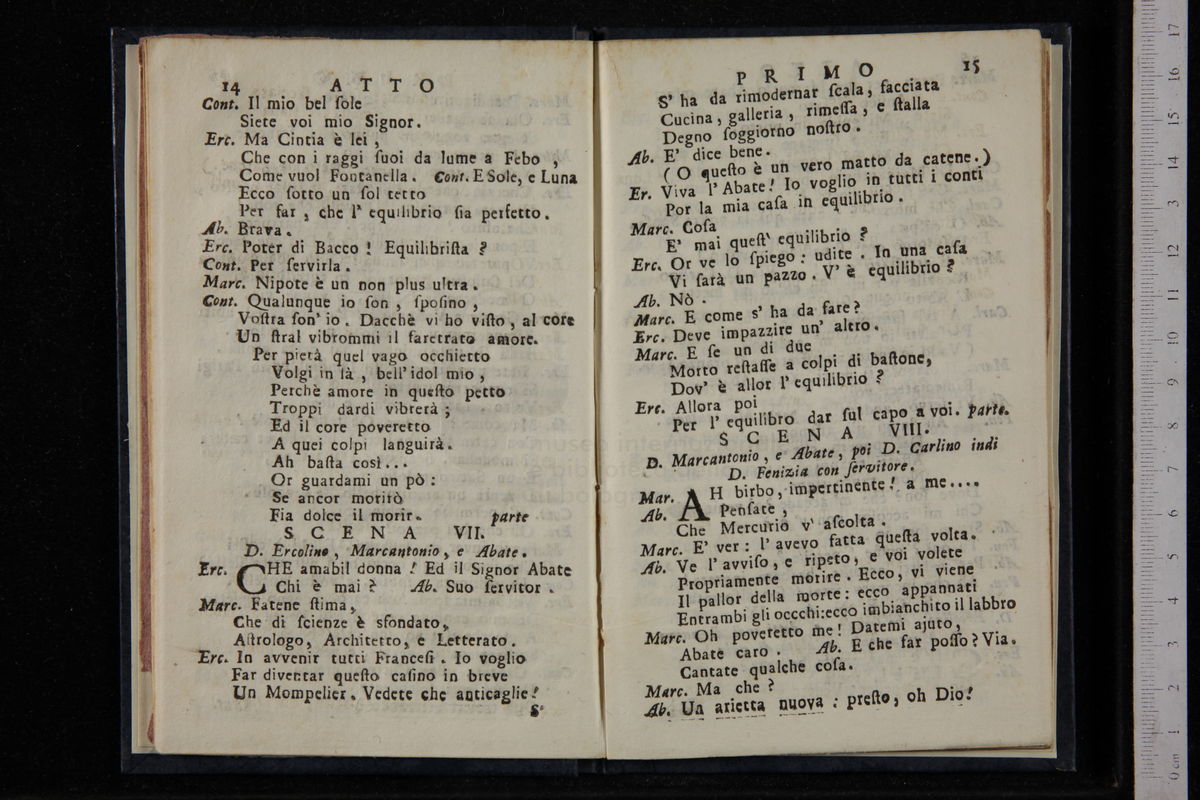 14 ATTO
Cont. Il mio bel ſole
Siete voi mio Signor.
Erc. Ma Cintia è lei,
Che con i raggi ſuoi da lume a Febo,
Come vuol Fontanella. Cont. E Sole, e Luna
Ecco ſotto un ſol tetto
Per far, che l'equilibrio ſia perfetto.
Ab. Brava.
Erc. Poter di Bacco! Equilibriſta?
Cont. Per ſervirla.
Marc. Nipote è un non plus ultra.
Cont. Qualunque io ſon, ſpoſino,
Voſtra ſon' io. Dacchè vi ho viſto, al core
Un ſtral vibrommi il faretrato amore.
Per pietà quel vago occhietto
Volgi in là, bell'idol mio,
Perchè amore in queſto petto
Troppi dardi vibrerà;
Ed il core poveretto
A quei colpi languirà.
Ah baſta così...
Or guardami un pò:
Se ancor morirò
Fia dolce il morir. parte
SCENA VII.
D. Ercolino, Marcantonio, e Abate.
Erc. CHE amabil donna! Ed il Signor Abate
Chi è mai? Ab. Suo ſervitor.
Marc. Fatene ſtima,
Che di ſcienze è sfondato,
Aſtrologo, Architetto, e Letterato.
Erc. In avvenir tutti Franceſi. Io voglio
Far diventar queſto caſino in breve
Un Mompelier. Vedete che anticaglie!
S'
PRIMO 15
S' ha da rimodernar ſcala, facciata
Cucina, galleria, rimeſſa, e ſtalla
Degno ſoggiorno noſtro.
Ab. E' dice bene.
(O queſto è un vero matto da catene.)
Er. Viva l'Abate! Io voglio in tutti i conti
Por la mia caſa in equilibrio.
Marc. Coſa
E' mai queſt' equilibrio?
Erc. Or ve lo ſpiego: udite. In una caſa
Vi ſarà un pazzo. V' è equilibrio?
Ab. Nò.
Marc. E come s' ha da fare?
Erc. Deve impazzire un' altro.
Marc. E ſe un di due
Morto reſtaſſe a colpi di baſtone,
Dov' è allor l'equilibrio?
Erc. Allora poi
Per l'equilibro dar ſul capo a voi. parte.
SCENA VIII.
D. Marcantonio, e Abate, poi D. Carlino indi
D. Fenizia con ſervitore.
Mar. AH birbo, impertinente! a me....
Ab. Penſate,
Che Mercurio v' aſcolta.
Marc. E' ver: l'avevo fatta queſta volta.
Ab. Ve l'avviſo, e ripeto, e voi volete
Propriamente morire. Ecco, vi viene
Il pallor della morte: ecco appannati
Entrambi gli occchi: ecco imbianchito il labbro
Marc. Oh poveretto me! Datemi ajuto,
Abate caro. Ab. E che far poſſo? Via.
Cantate qualche coſa.
Marc. Ma che?
Ab. Una arietta nuova: preſto, oh Dio!